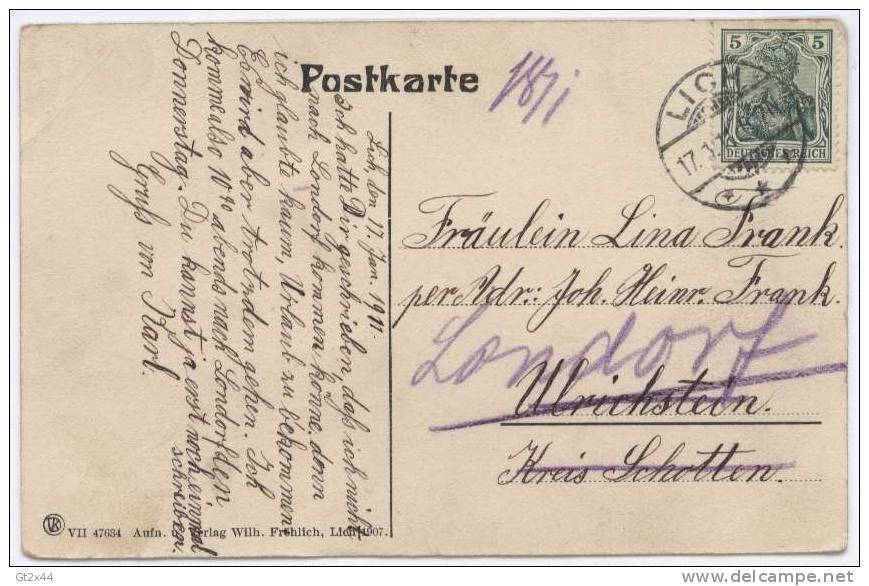 Postkarte
18/1
5 5
DEUTSCHES REICH
LICH
17.1.
Lich, den 17. Jan. 1911.
Ich hatte Dir geschrieben, daß ich nicht
nach Londorf kommen könne, denn
ich glaubte kaum, Urlaub zu bekommen
Es wird aber trotzdem gehen. Ich
komme also 10⁴⁰ abends nach Londorf den
Donnerstag. Du kannst ja erst noch einmal
schreiben.
Gruß von Karl.
Fräulein Lina Frank.
per Adr: Joh. Heinr. Frank.
Londorf
Ulrichstein.
Kreis Schotten.
VK VII 47634 Aufn. Verlag Wilh. Fröhlich, Lich 1907.
Gt2x44
delcampe.net